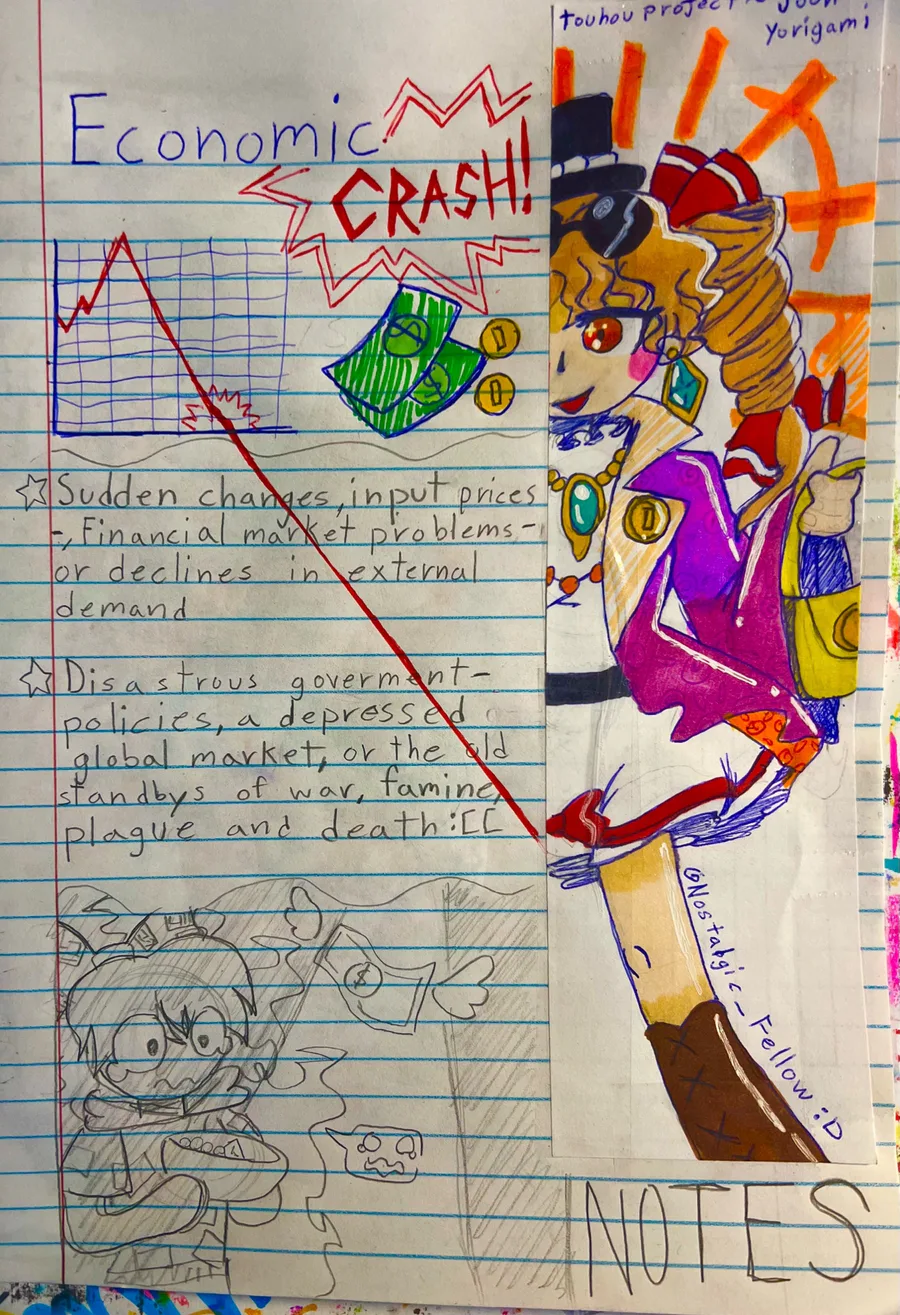 touhou project Joon
Yorigami
Economic
CRASH!
$
$
☆ Sudden changes, input prices
-, Financial market problems,-
or declines in external
demand
☆ Disastrous goverment-
policies, a depressed
global market, or the old
standbys of war, famine,
plague and death :[[
$
@Nostalgic_Fellow :D
NOTES